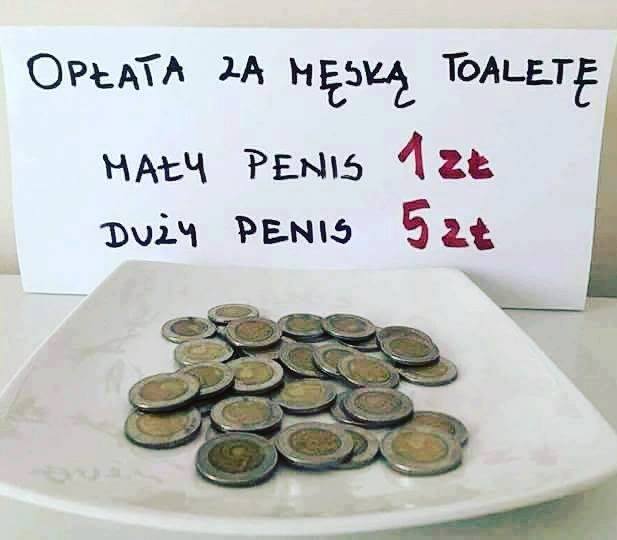 OPŁATA ZA MĘSKĄ TOALETĘ
MAŁY PENIS 1 ZŁ
DUŻY PENIS 5 ZŁ